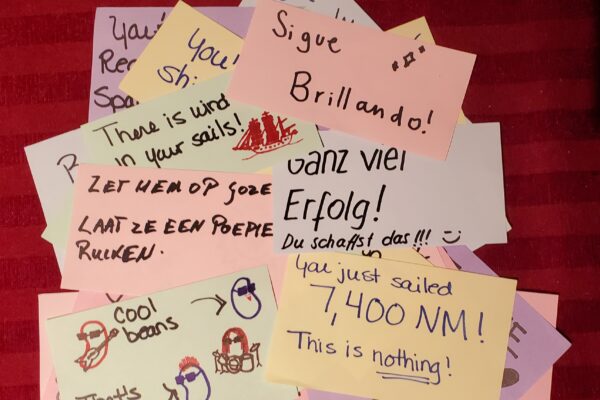 You
Rea
Spa
You
Shi
Sigue
Brillando!
There is wind
in your sails!
B
ZET HEM OP GOZE
LAAT ZE EEN POEPIE
RUIKEN.
Ganz viel
Erfolg!
Du schaffst das!!!
You just sailed
7,400 NM!
This is nothing!
Cool
beans
That's